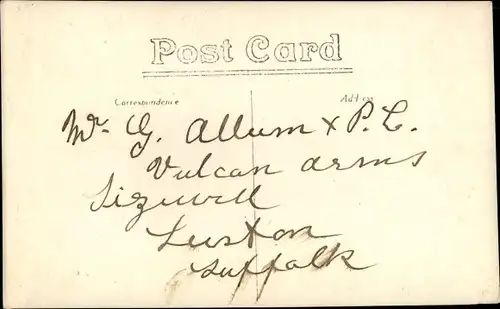 Post Card
Correspondence
Address
Mr. G. Allum x P.C.
Vulcan arms
Sizewell
Leiston
Suffolk